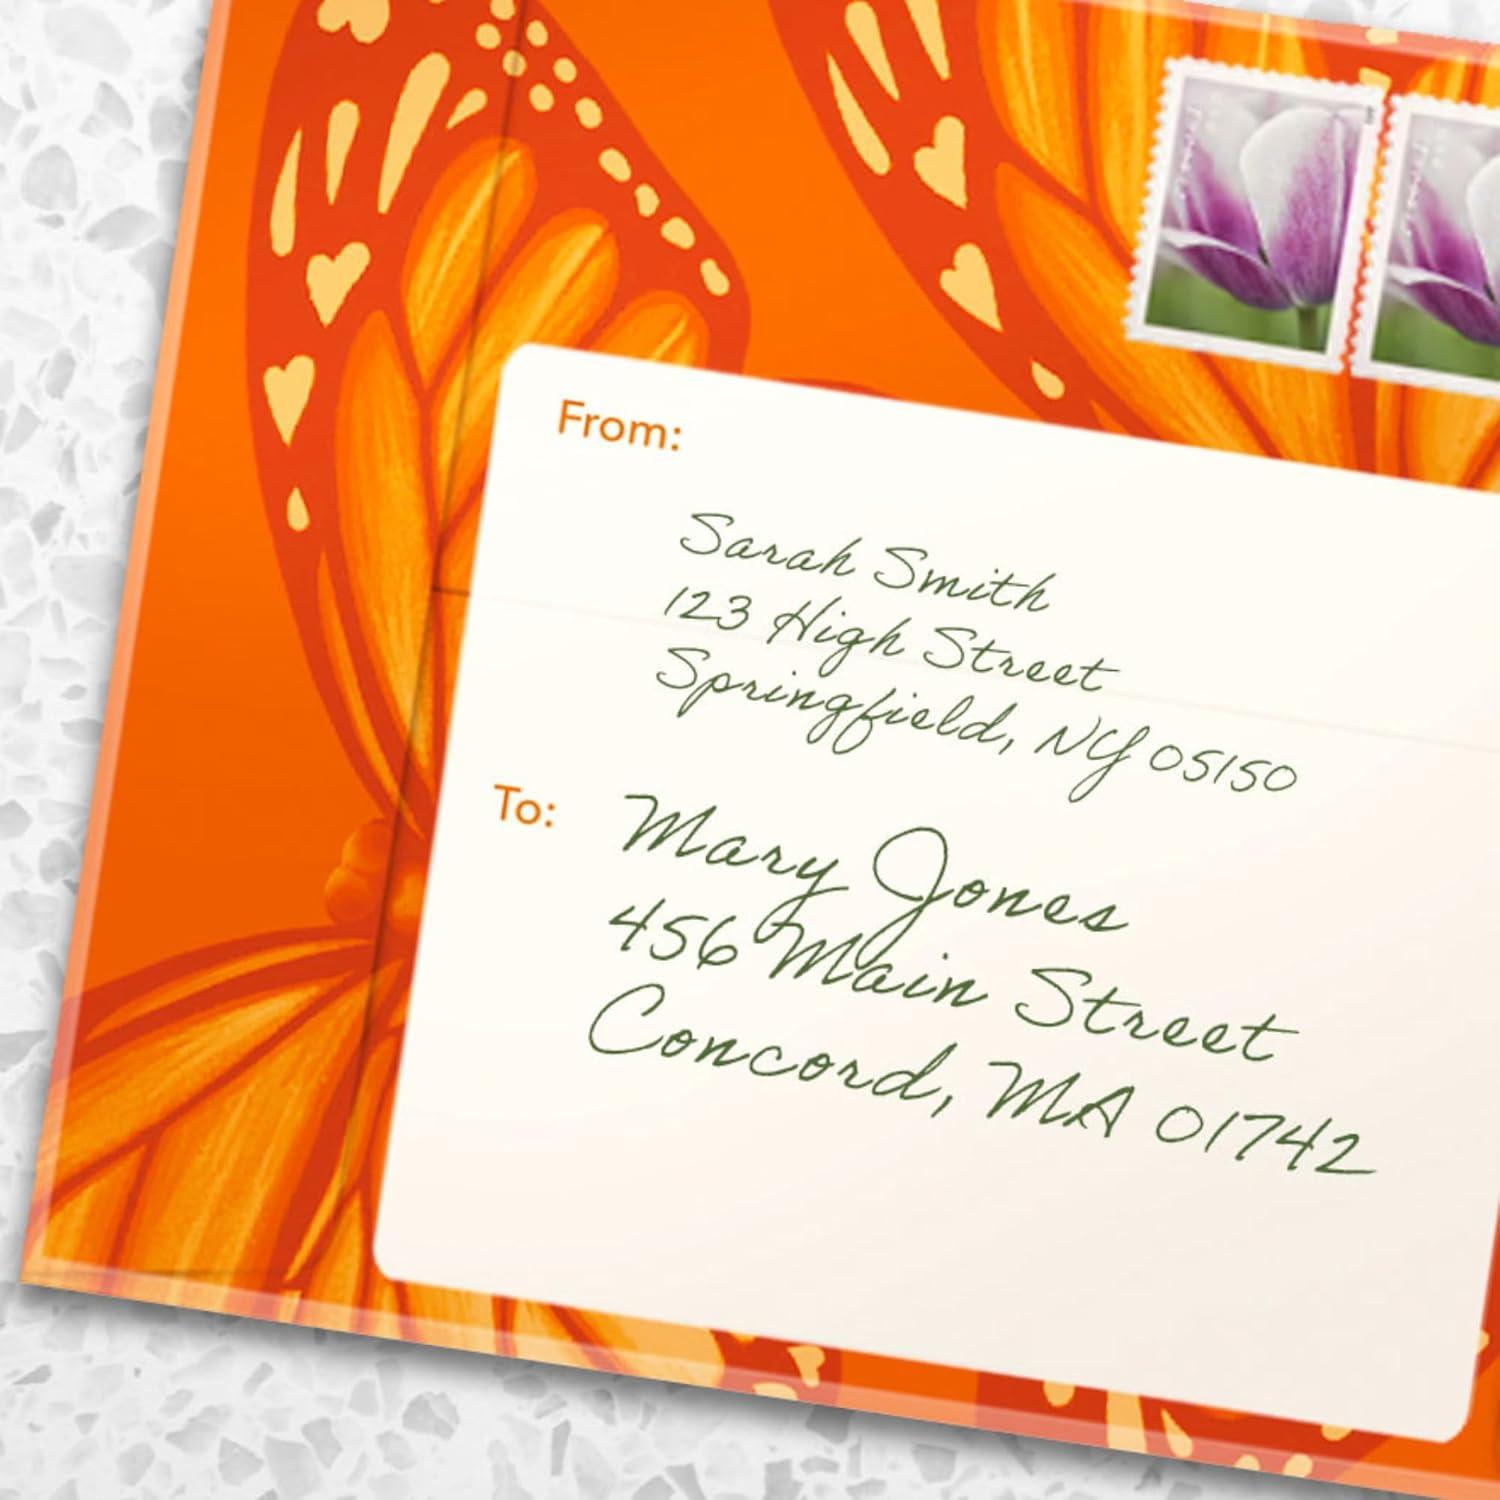 From:
Sarah Smith
123 High Street
Springfield, NY 05150
To:
Mary Jones
456 Main Street
Concord, MA 01742